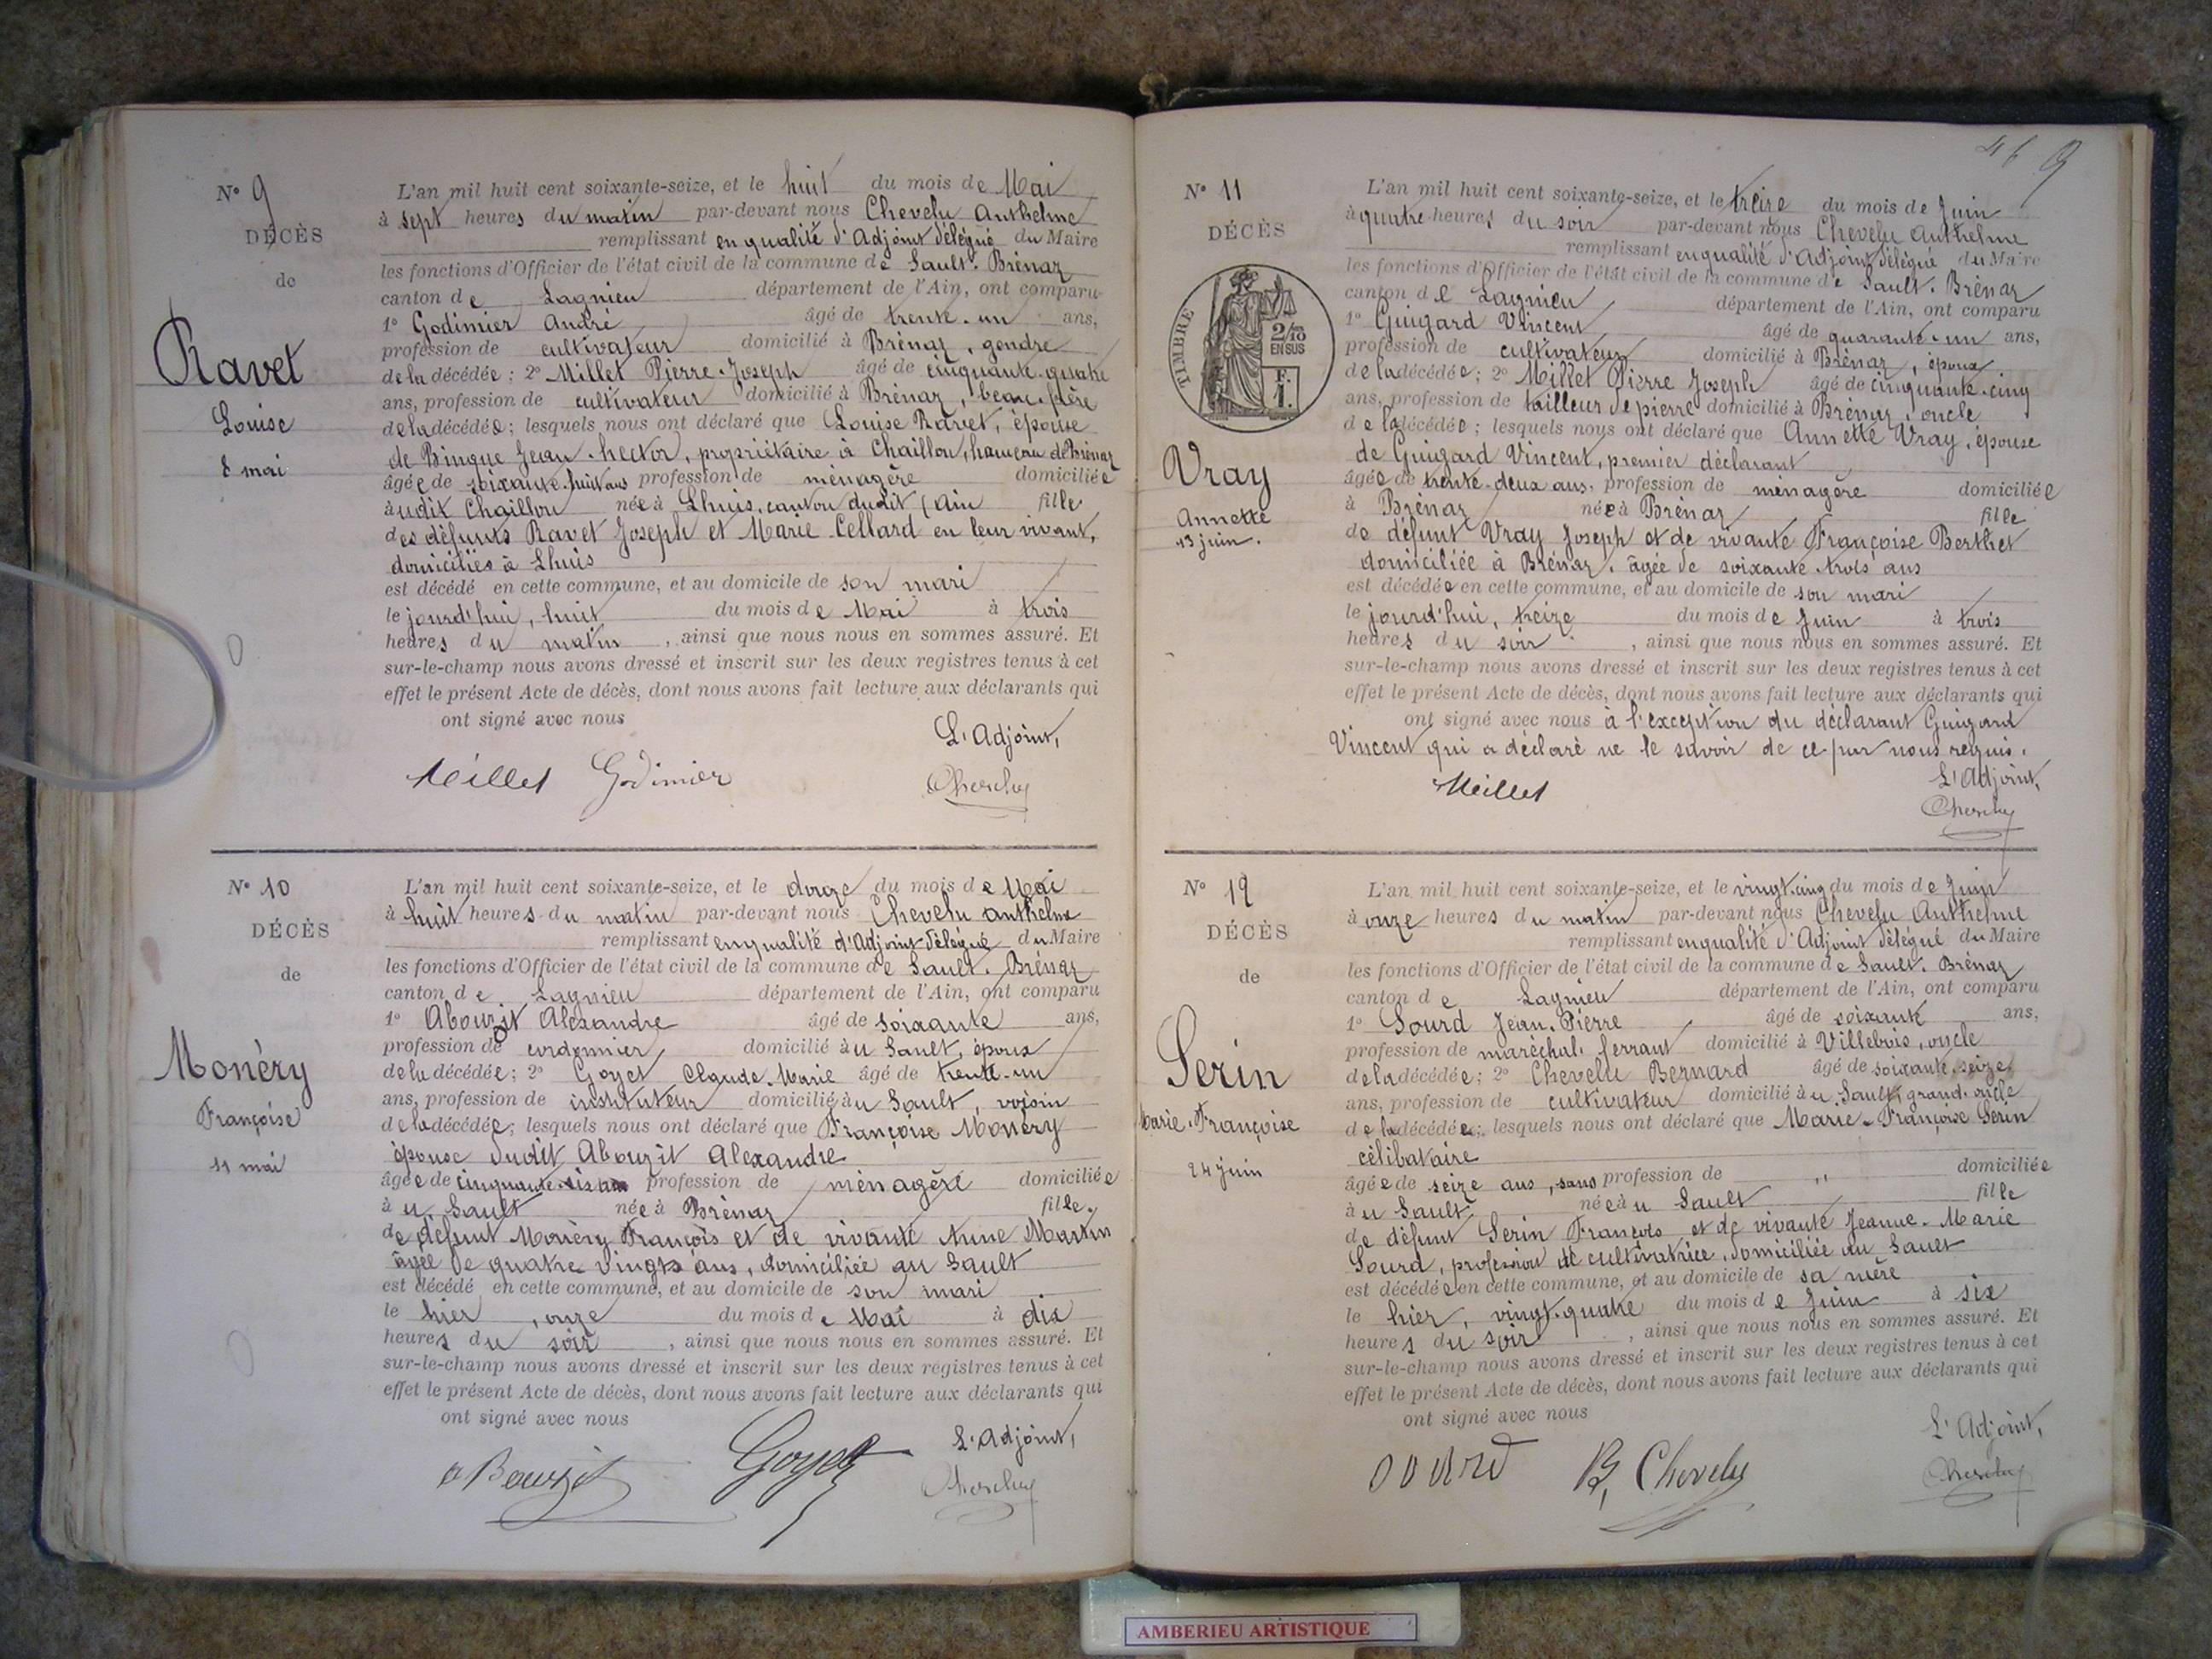 N° 9
DÉCÈS
de
Ravet
Louise
8 mai
L'an mil huit cent soixante-seize, et le huit du mois de Mai
à sept heures du matin par-devant nous Chevelu Anthelme
remplissant en qualité d'Adjoint délégué du Maire
les fonctions d'Officier de l'état civil de la commune de Sault-Brénaz
canton de Lagnieu département de l'Ain, ont comparu
1° Godimier André âgé de trente-un ans,
profession de cultivateur domicilié à Brénaz, gendre
de la décédée; 2° Millet Pierre-Joseph âgé de cinquante-quatre
ans, profession de cultivateur domicilié à Brénaz, beau-frère
de la décédée; lesquels nous ont déclaré que Louise Ravet, épouse
de Binque Jean-hector, propriétaire à Chaillou, hameau de Brénaz
âgée de soixante-huit ans profession de ménagère domiciliée
audit Chaillou née à Lhuis, canton dudit (Ain fille
des défunts Ravet Joseph et Marie Cellard en leur vivant,
domiciliés à Lhuis
est décédé en cette commune, et au domicile de son mari
le jourd'hui, huit du mois de Mai à trois
heures du matin, ainsi que nous nous en sommes assuré. Et
sur-le-champ nous avons dressé et inscrit sur les deux registres tenus à cet
effet le présent Acte de décès, dont nous avons fait lecture aux déclarants qui
ont signé avec nous
L'Adjoint,
Millet Godimier Chevelu
N° 10
DÉCÈS
de
Monéry
Françoise
11 mai
L'an mil huit cent soixante-seize, et le douze du mois de Mai
à huit heures du matin par-devant nous Chevelu Anthelme
remplissant en qualité d'Adjoint délégué du Maire
les fonctions d'Officier de l'état civil de la commune de Sault-Brénaz
canton de Lagnieu département de l'Ain, ont comparu
1° Abouzit Alexandre âgé de soixante ans,
profession de cordonnier domicilié au Sault, époux
de la décédée; 2° Goyet Claude-Marie âgé de trente-un
ans, profession de instituteur domicilié au Sault, voisin
de la décédée; lesquels nous ont déclaré que Françoise Monéry
épouse dudit Abouzit Alexandre
âgée de cinquante-six ans profession de ménagère domiciliée
au Sault née à Brénaz fille
de défunt Monéry François et de vivante Anne Martin
âgée de quatre-vingts ans, domiciliée au Sault
est décédé en cette commune, et au domicile de son mari
le hier, onze du mois de Mai à dix
heures du soir, ainsi que nous nous en sommes assuré. Et
sur-le-champ nous avons dressé et inscrit sur les deux registres tenus à cet
effet le présent Acte de décès, dont nous avons fait lecture aux déclarants qui
ont signé avec nous
L'Adjoint,
aBouzit Goyet Chevelu
N° 11
DÉCÈS
TIMBRE
2/10
EN SUS
F.
1.
Vray
Annette
13 juin.
L'an mil huit cent soixante-seize, et le treize du mois de Juin
à quatre heures du soir par-devant nous Chevelu Anthelme
remplissant en qualité d'Adjoint délégué du Maire
les fonctions d'Officier de l'état civil de la commune de Sault-Brénaz
canton de Lagnieu département de l'Ain, ont comparu
1° Guigard Vincent âgé de quarante-un ans,
profession de cultivateur domicilié à Brénaz, époux
de la décédée; 2° Millet Pierre Joseph âgé de cinquante-cinq
ans, profession de tailleur de pierre domicilié à Brénaz, oncle
de la décédée; lesquels nous ont déclaré que Annette Vray, épouse
de Guigard Vincent, premier déclarant
âgée de trente-deux ans, profession de ménagère domiciliée
à Brénaz née à Brénaz fille
de défunt Vray Joseph et de vivante Françoise Berthet
domiciliée à Brénaz, âgée de soixante-trois ans
est décédée en cette commune, et au domicile de son mari
le jourd'hui, treize du mois de Juin à trois
heures du soir, ainsi que nous nous en sommes assuré. Et
sur-le-champ nous avons dressé et inscrit sur les deux registres tenus à cet
effet le présent Acte de décès, dont nous avons fait lecture aux déclarants qui
ont signé avec nous à l'exception du déclarant Guigard
Vincent qui a déclaré ne le savoir de ce par nous requis.
L'Adjoint,
Millet Chevelu
N° 12
DÉCÈS
de
Serin
Marie-Françoise
24 juin
L'an mil huit cent soixante-seize, et le vingt-cinq du mois de Juin
à onze heures du matin par-devant nous Chevelu Anthelme
remplissant en qualité d'Adjoint délégué du Maire
les fonctions d'Officier de l'état civil de la commune de Sault-Brénaz
canton de Lagnieu département de l'Ain, ont comparu
1° Sourd Jean-Pierre âgé de soixante ans,
profession de maréchal-ferrant domicilié à Villebois, oncle
de la décédée; 2° Chevelu Bernard âgé de soixante-seize
ans, profession de cultivateur domicilié au Sault, grand-oncle
de la décédée; lesquels nous ont déclaré que Marie-Françoise Serin
célibataire
âgée de seize ans, sans profession de ,, domiciliée
au Sault née au Sault fille
de défunt Serin François et de vivante Jeanne-Marie
Sourd, profession de cultivatrice, domiciliée au Sault
est décédée en cette commune, et au domicile de sa mère
le hier, vingt-quatre du mois de Juin à six
heures du soir, ainsi que nous nous en sommes assuré. Et
sur-le-champ nous avons dressé et inscrit sur les deux registres tenus à cet
effet le présent Acte de décès, dont nous avons fait lecture aux déclarants qui
ont signé avec nous
L'Adjoint,
sourd B, Chevelu Chevelu
AMBERIEU ARTISTIQUE